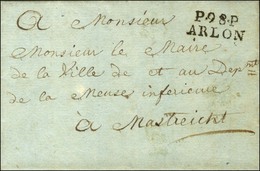 P.98.P
ARLON
A Monsieur
Monsieur le Maire
de la Ville de et au Dep^mt
de la Meuse inferieure
à Mastreicht